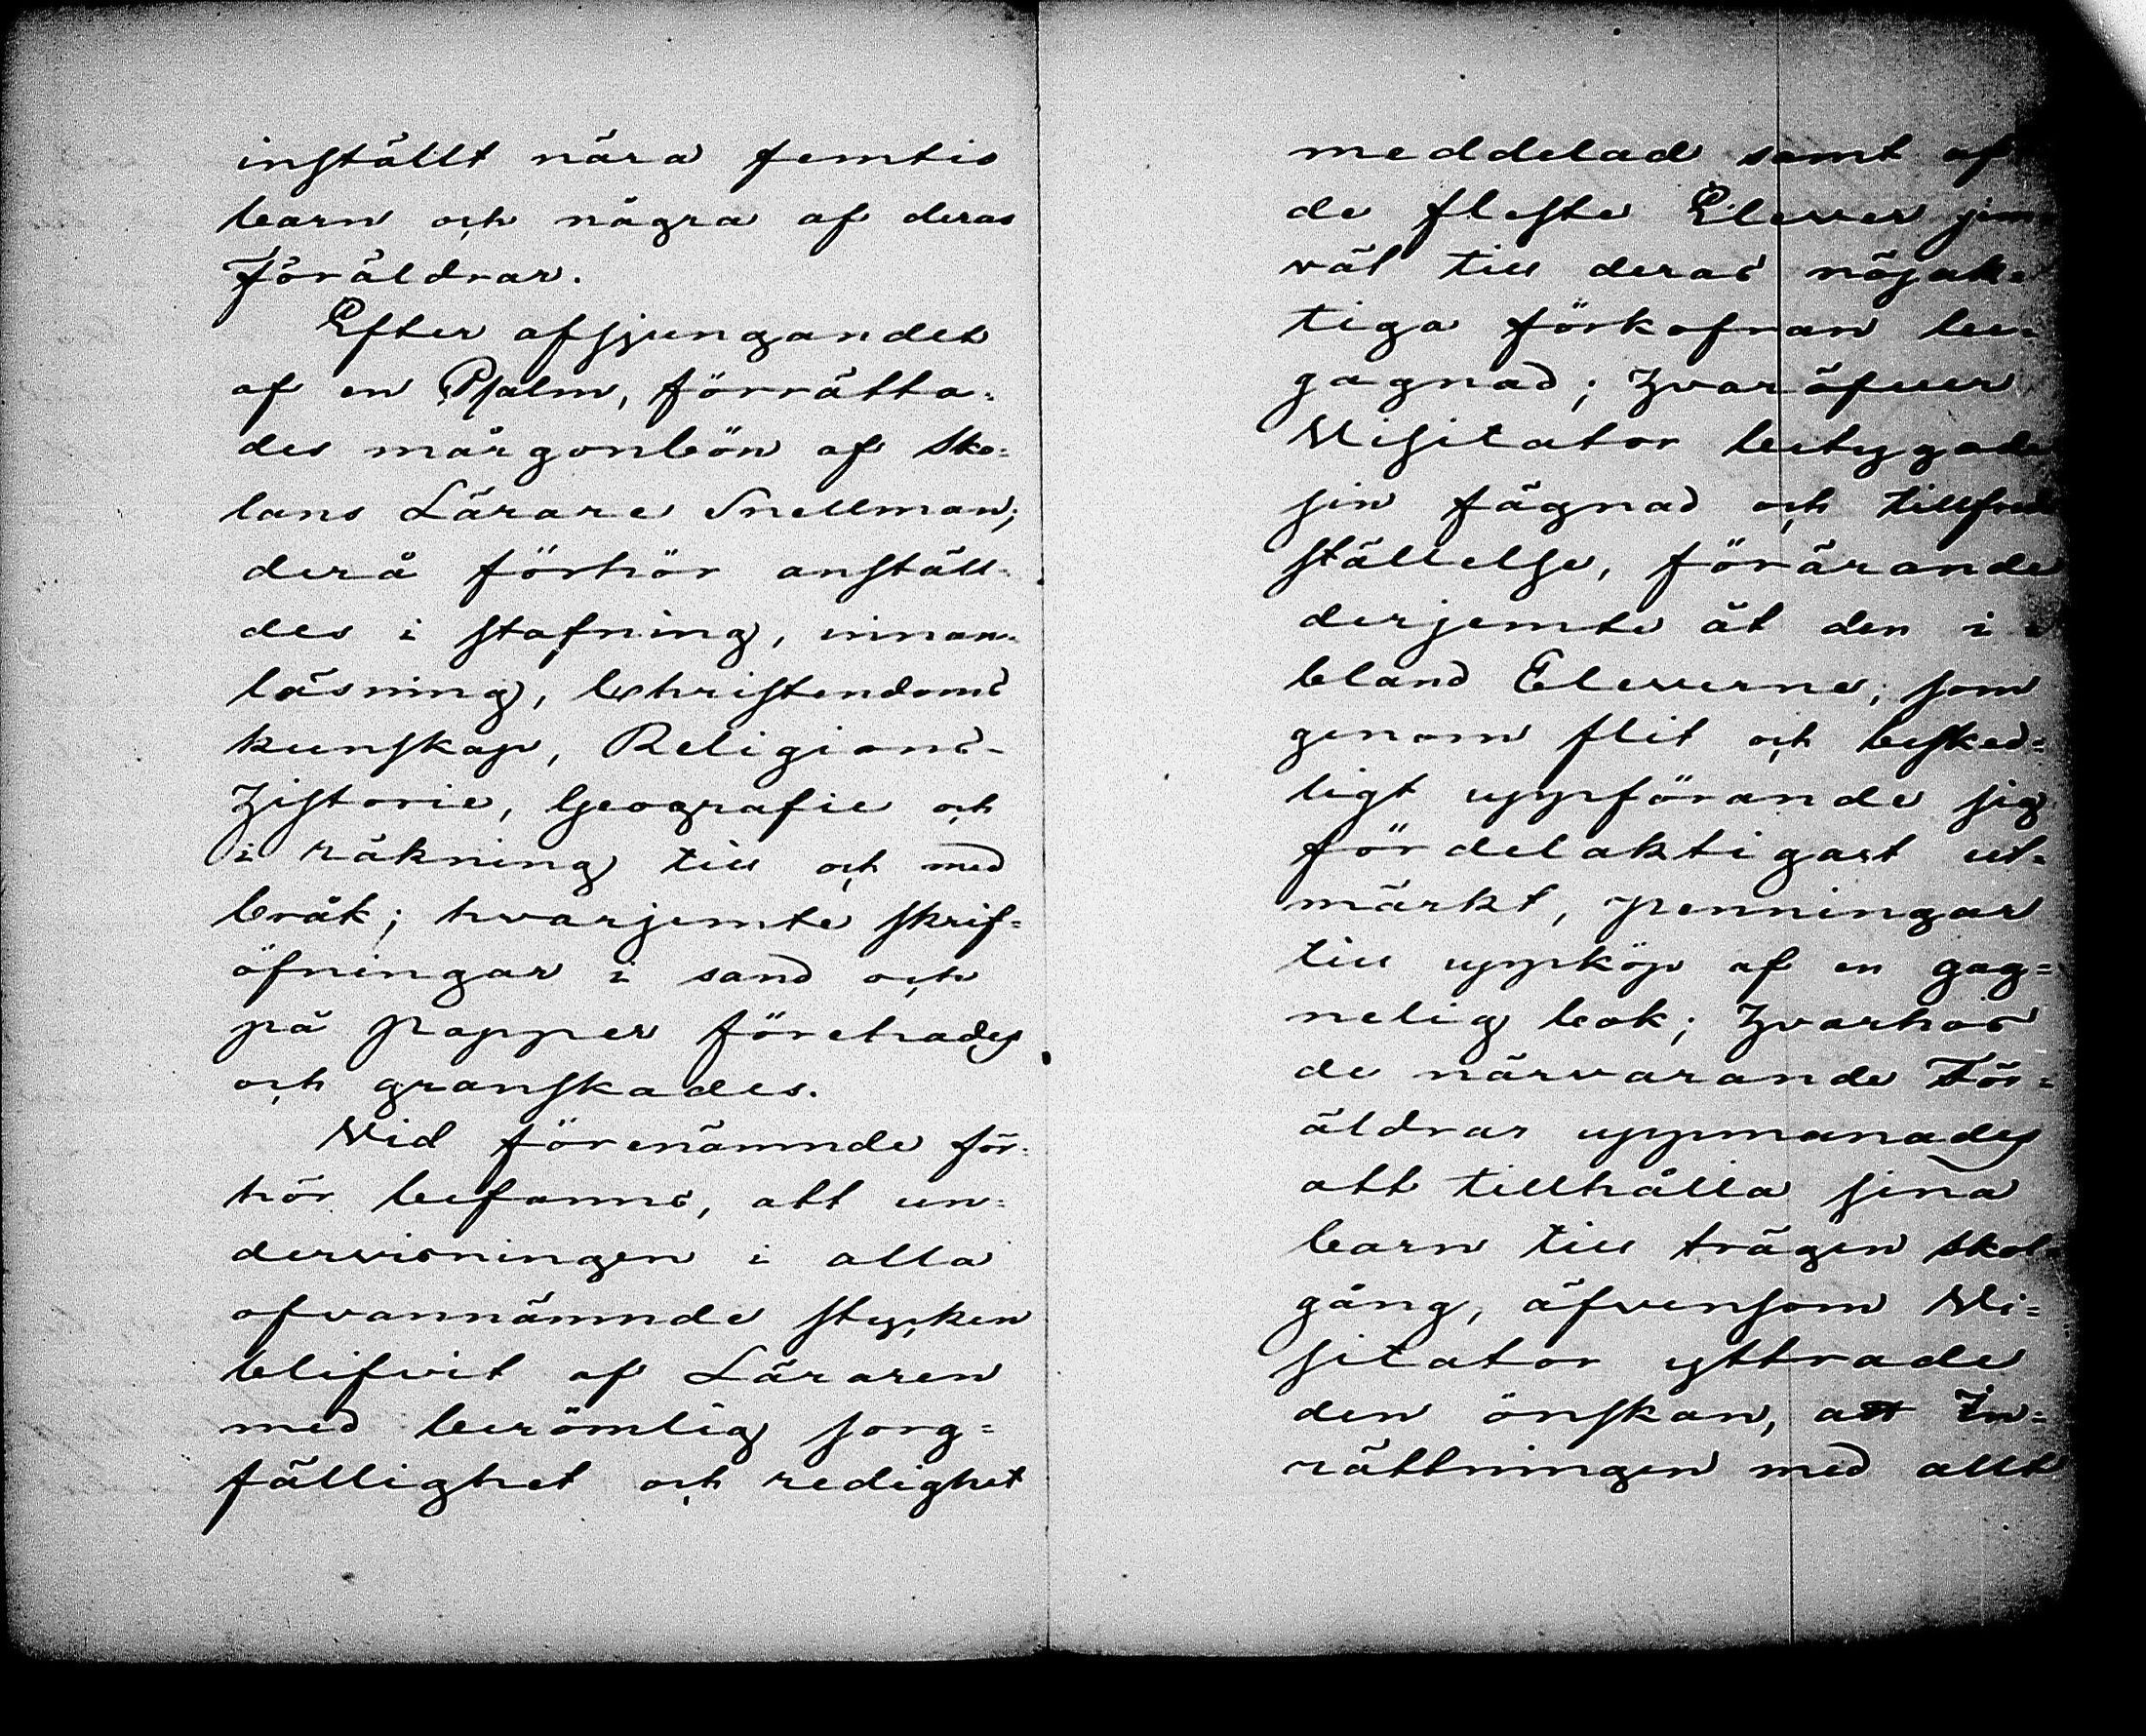 inställt nära femtio
barn och några af deras
föräldrar.
Efter afsjungandet
af en Psalm, förrätta=
des mårgonbön af Sko=
lans Lärare Snellman;
derå förhör anställ=
des i stafning, innan=
läsning, Christendoms
kunskap, Religions-
Historie, Geografie och
i räkning till och med
bråk; hvarjemte skrif=
öfningar i sand och
på papper förehades
och granskades.
Vid förenämnde för=
hör befanns, att un=
dervisningen i alla
ofvannämnde stycken
blifvit af Läraren
med berömlig sorg=
fällighet och redighet
meddelad samt af
de fleste Elever jem=
väl till deras nöjak=
tiga förkofran be=
gagnad; hvaröfver
Visitator betygade
sin fägnad och tillfreds
ställelse, förärande
derjemte åt den i=
bland Eleverne, som
genom flit och besked=
ligt uppförande sig
fördelaktigast ut=
märkt, penningar
till uppköp af en gag=
nelig bok; hvarhos
de närvarande För=
äldrar uppmanades
att tillhålla sina
barn till trägen skol=
gång, äfvensom Vi=
sitator yttrade
den önskan, att In=
rättningen med allt